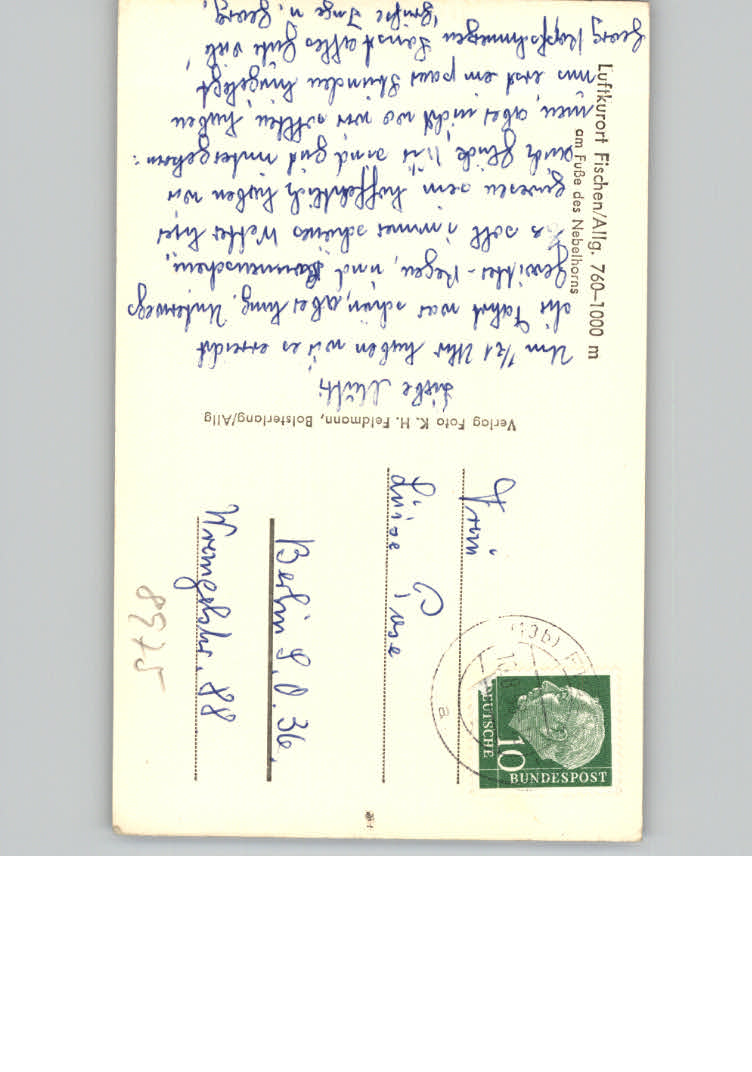 Luftkurort Fischen/Allg. 760–1000 m
am Fuße des Nebelhorns
Liebe Mutti,
Um 1/21 Uhr haben wir es erreicht
die Fahrt war schön, aber lang. Unterwegs
Gewitter-Regen, und Sonnenschein,
es soll immer schönes Wetter hier
gewesen sein hoffentlich haben wir
auch Glück. Wir sind gut untergekom:
men, aber nicht wo wir wollten haben
uns erst ein paar Stunden hingelegt
Georg Kopfschmerzen sonst alles Gute viele
Grüße Inge u. Georg.
Verlog Foto K. H. Feldmann, Bolsterlang/Allg
Frau
Luise
Berlin S.O. 36.
Wrangelstr. 88
5738
10
DEUTSCHE
BUNDESPOST
(13b)
a